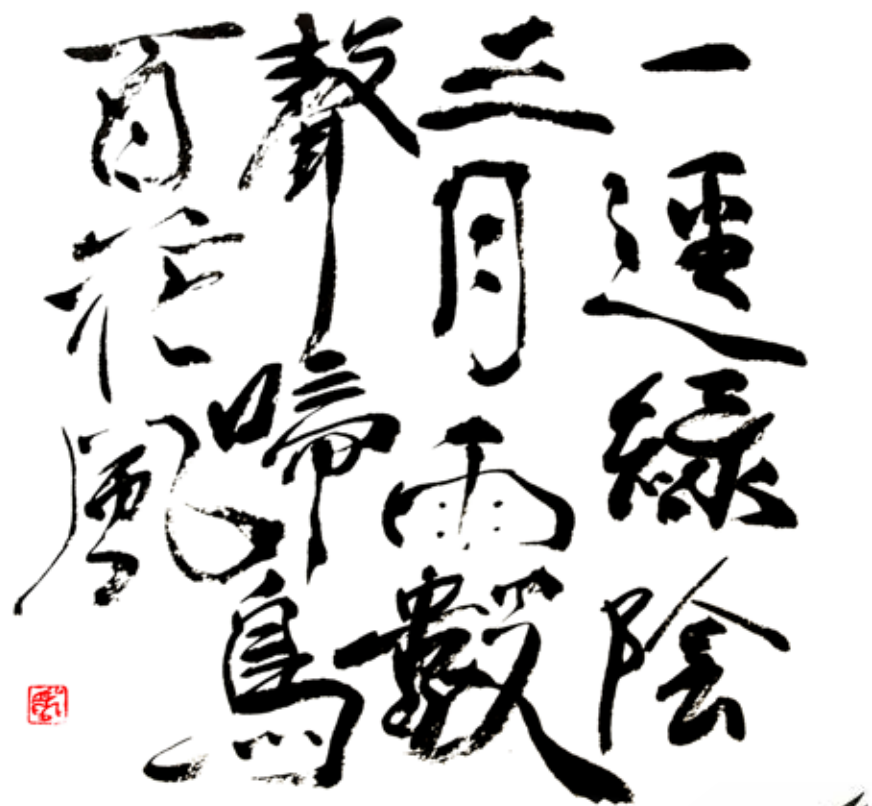 一逕綠陰
三月雨數
聲啼鳥
百花風